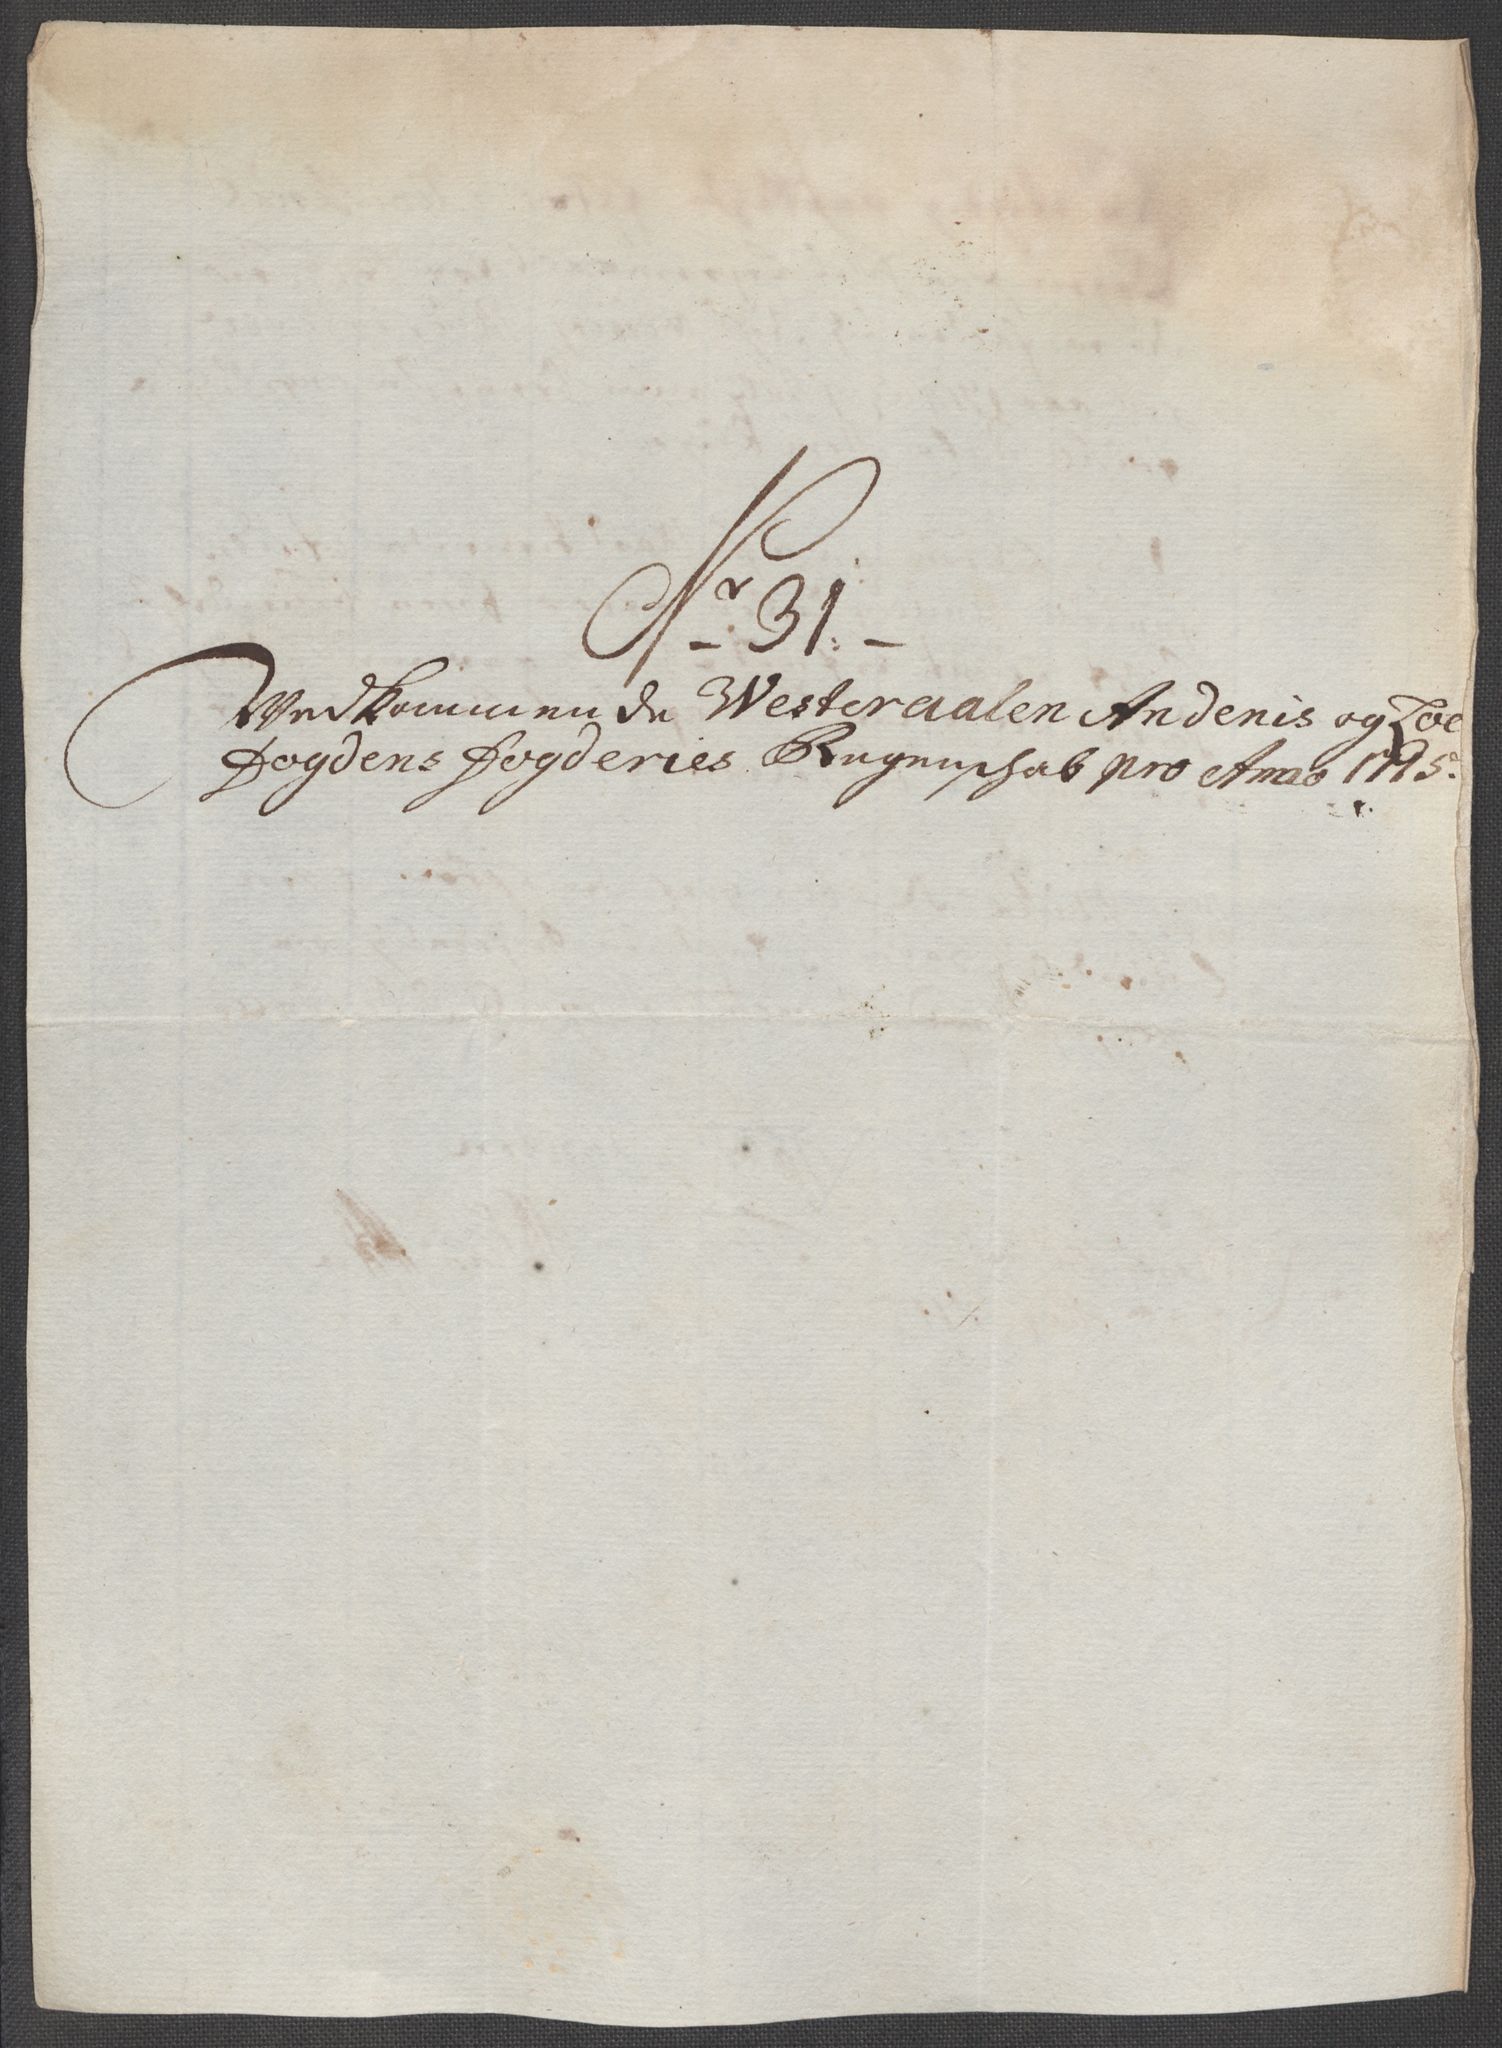 Nr 31.
Vedkommende Westeraalen Andenis og Lof
fogdens fogderies Regenschab pro Anno 1715.